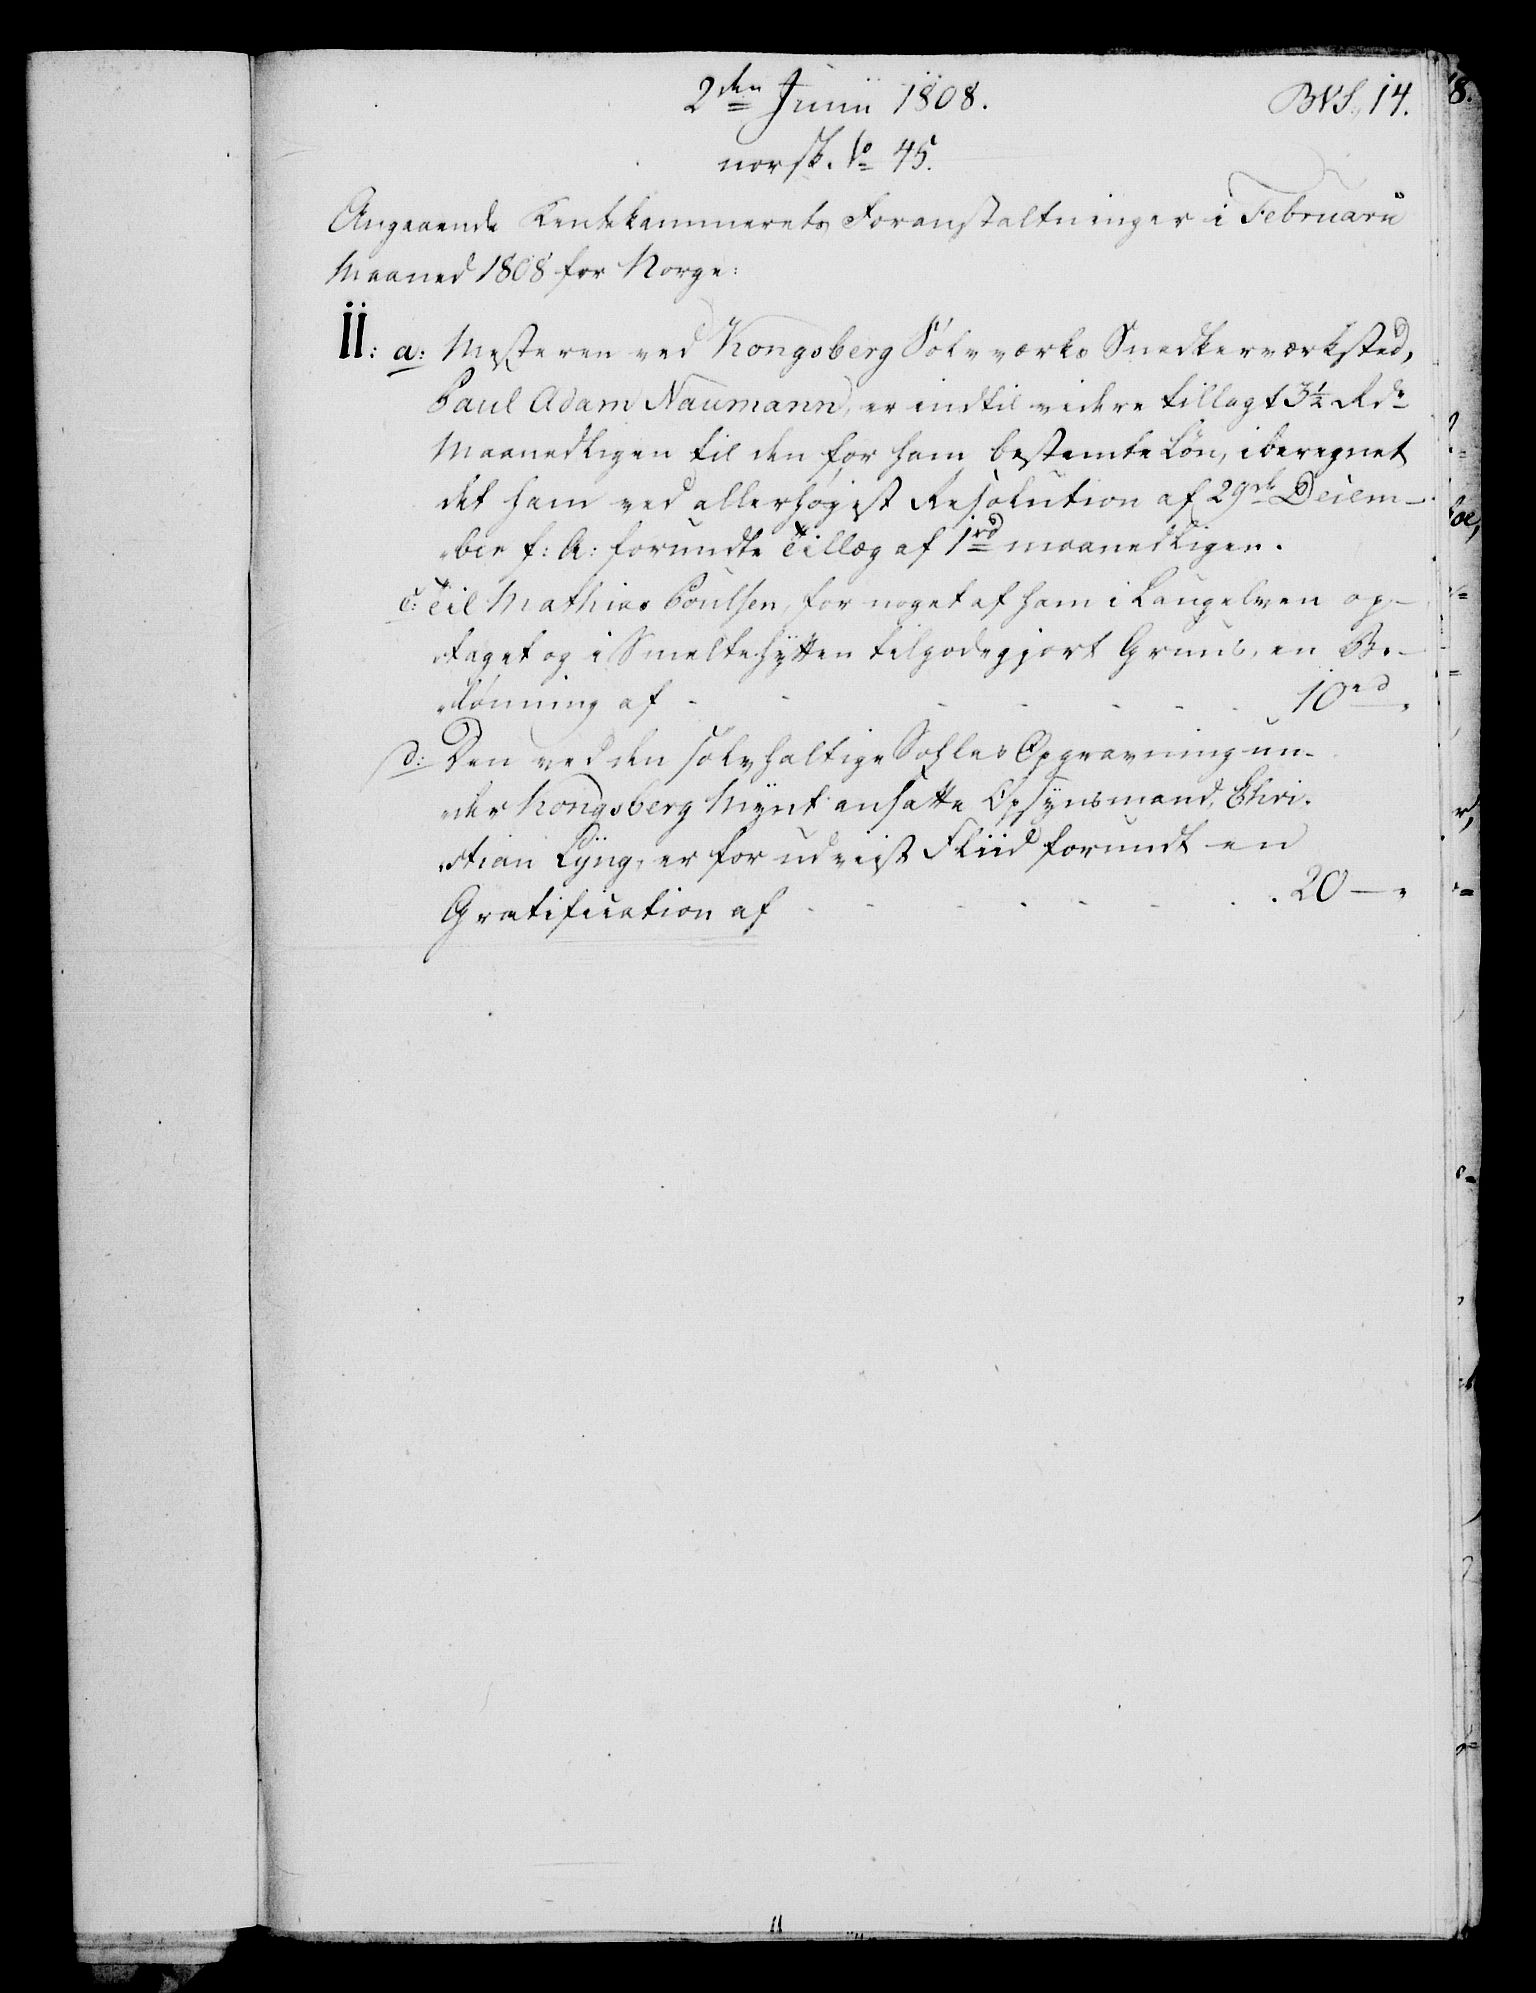 2den Junii 1808. BVS, 14.
norsk. No 45.
Angaaende Rentekammerets Foranstaltninger i Februarii
Maaned 1808 for Norge:
II: a: Mesteren ved Kongsberg Sölvværks Snedkerværksted,
Paul Adam Naumann, er indtil videre tillagt 3½ Rdr
Maanedligen til den for ham bestemte Lön, iberegnet
det ham ved allerhöjest Resolution af 29de Decem-
ber f: A: forundte Tillæg af 1rd maanedligen.
c: Til Mathias Poulsen, for noget af ham i Laugelven op-
taget og i Smeltehytten tilgodegjort Gruus, en Be-
lönning af - - - - - - - 10rd „
d: Den ved den sölvholtige Sohles Opgravning un-
der Kongsberg Mynt ansatte Opsynsmand, Chri-
stian Lyng, er for udviist Fliid forundt en
Gratification af - - - - - - - 20 — „